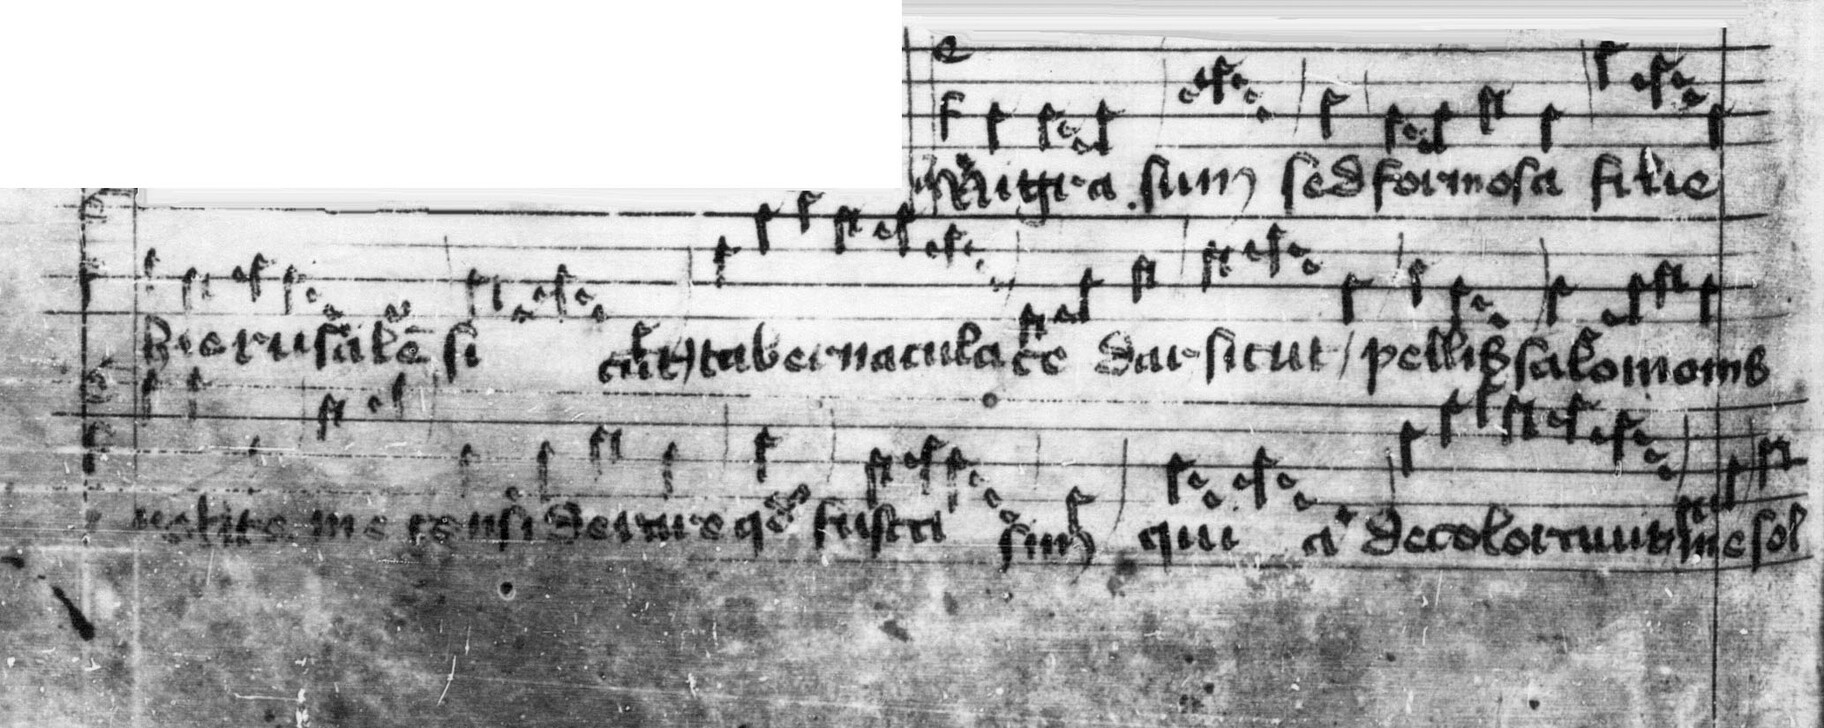 Nigra sum sed formosa filie
hierusalē si cut tabernacula ce dar sicut pellis salomonis
nolite me considerare qd fusca sum qui a decolorauit me sol